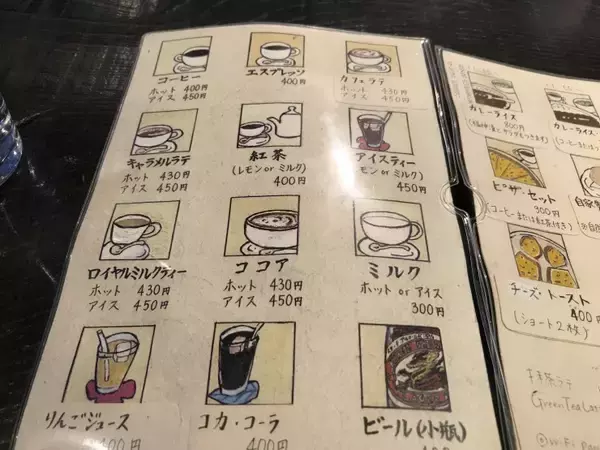 コーヒー
ホット 400円
アイス 450円
エスプレッソ
400円
カフェラテ
ホット 430円
アイス 450円
キャラメルラテ
ホット 430円
アイス 450円
紅茶
(レモン or ミルク)
400円
アイスティー
(レモン or ミルク)
450円
ロイヤルミルクティー
ホット 430円
アイス 450円
ココア
ホット 430円
アイス 450円
ミルク
ホット or アイス
300円
りんごジュース
400円
コカ・コーラ
400円
ビール(小瓶)
カレーライス
800円
カレーライス
ピザ・セット
900円
(コーヒーまたは紅茶付き)
自家
チーズ・トースト
400円
(ショート2枚)
抹茶ラテ
Green Tea